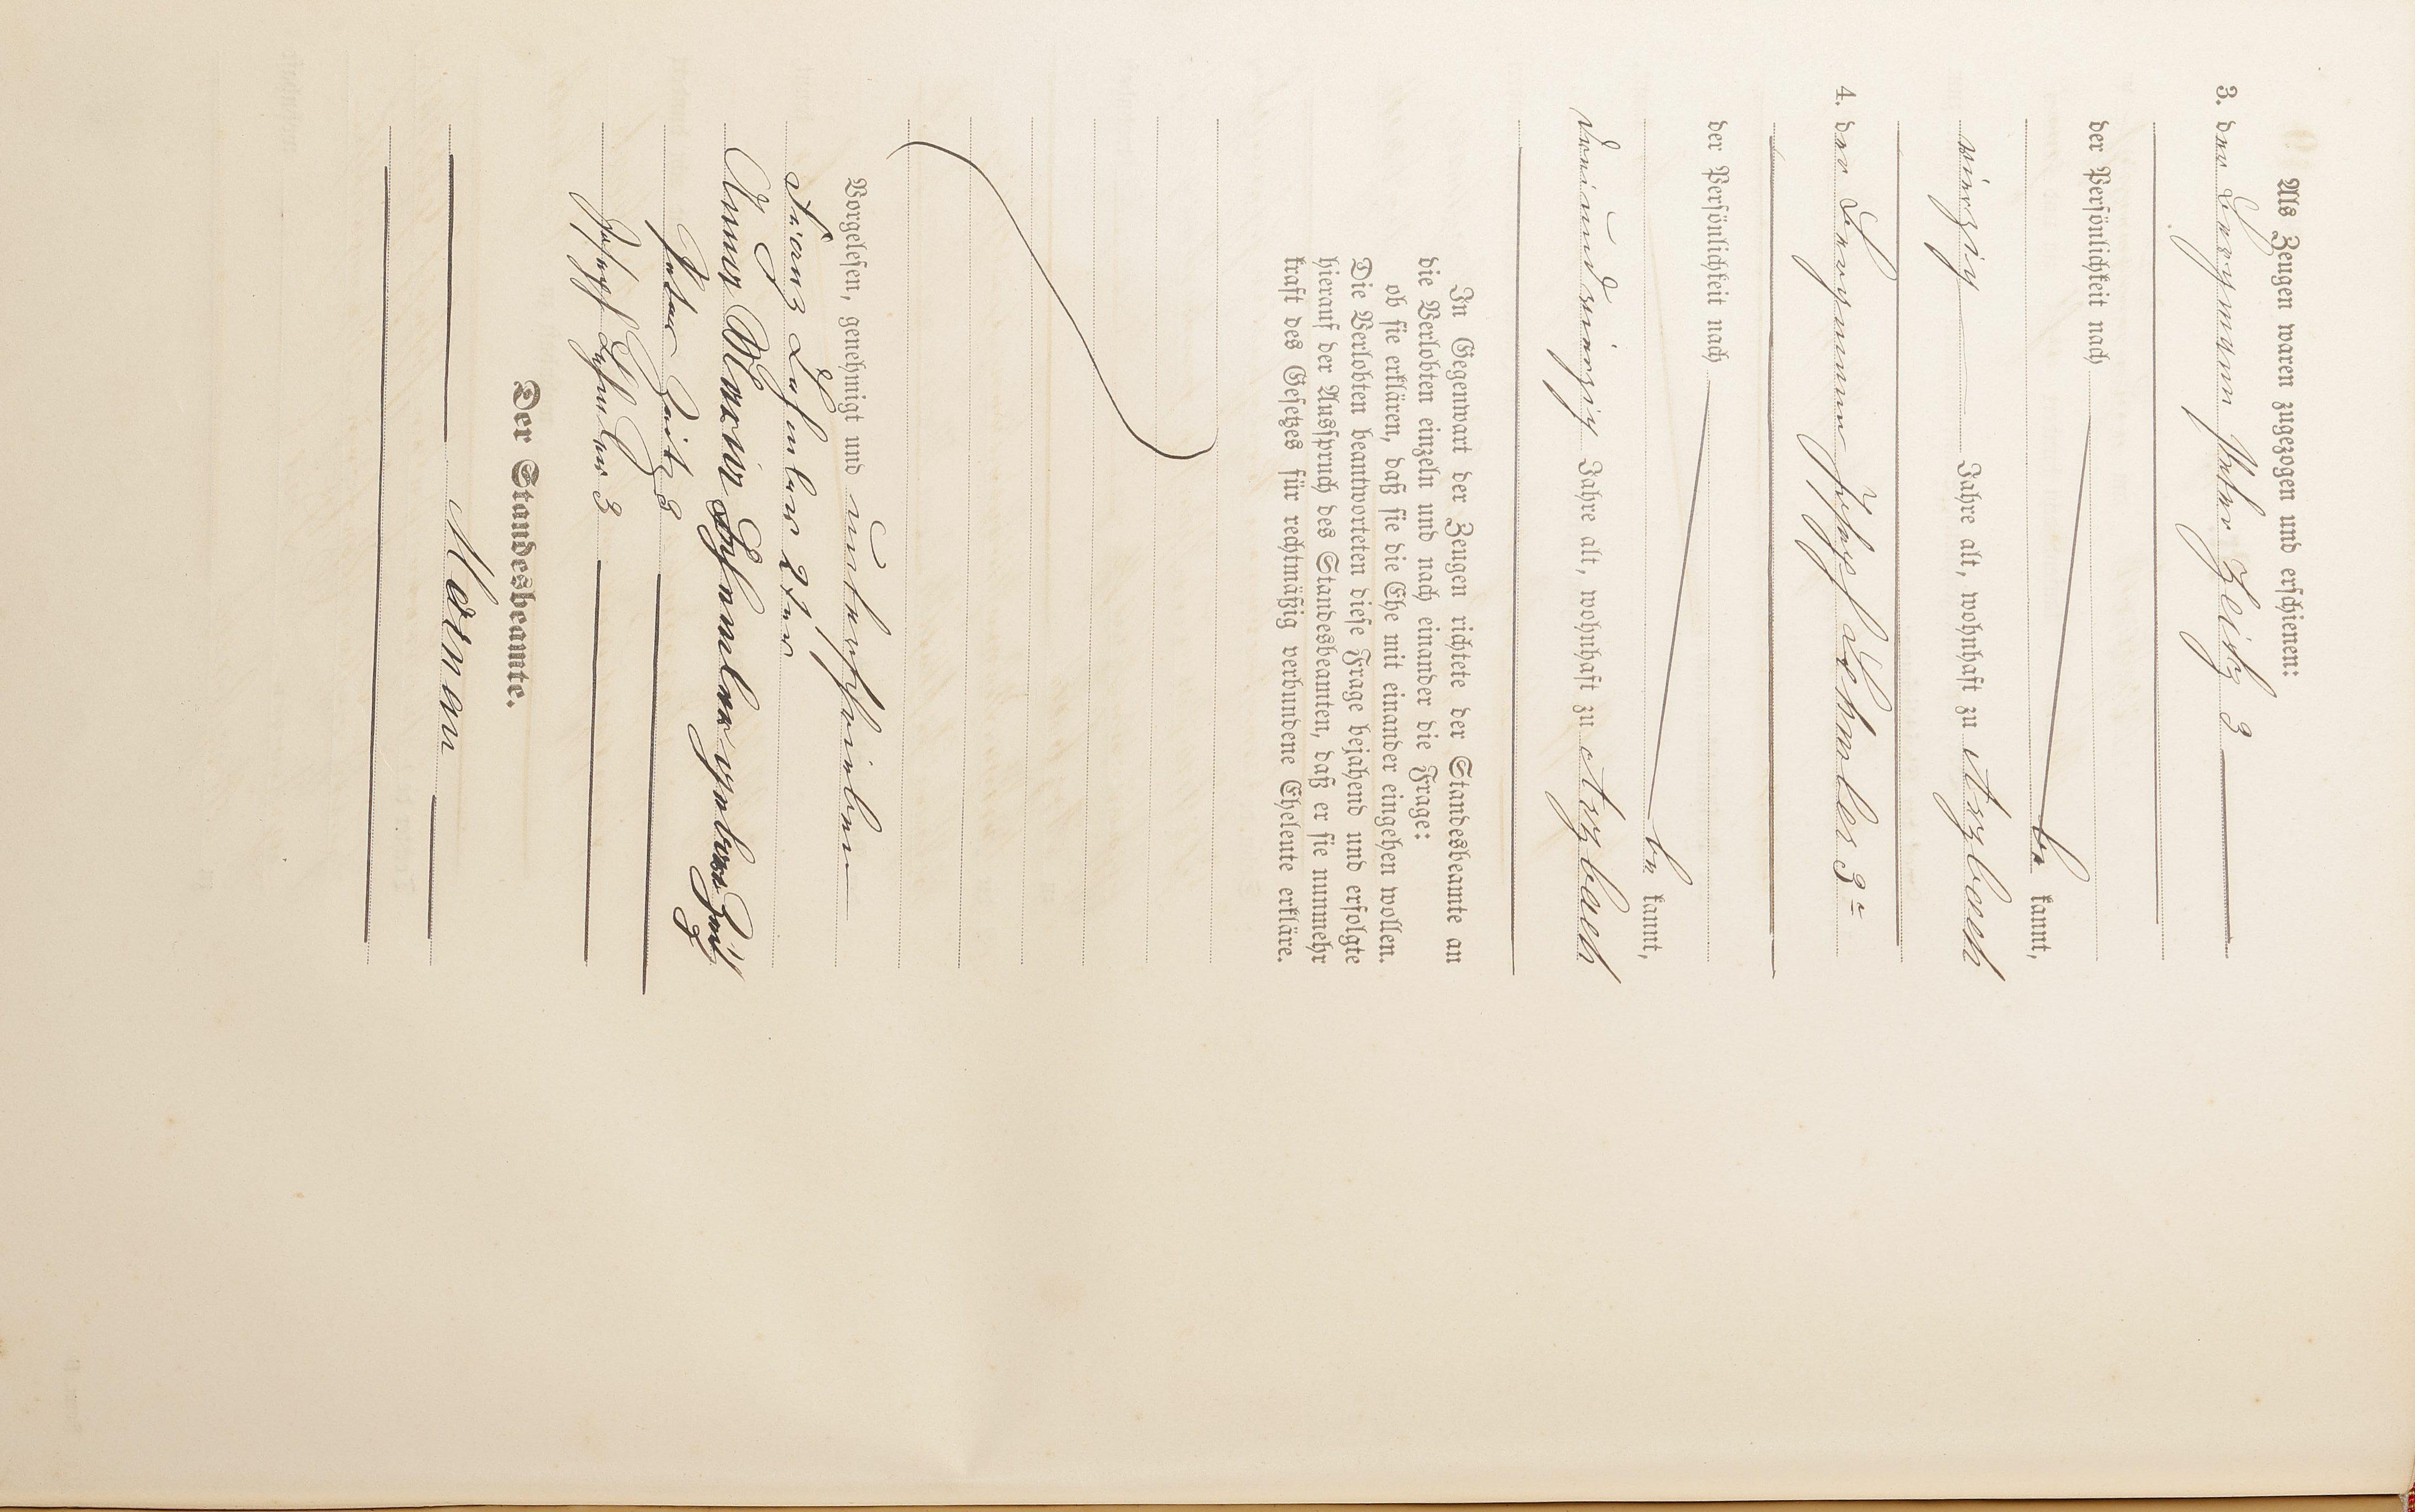 Als Zeugen waren zugezogen und erschienen:
3. der Bergmann Peter Zeitz 3
der Persönlichkeit nach
be kannt,
vierzig Jahre alt, wohnhaft zu Arzbach
4. der Bergmann Joseph Lehmler 3ter
der Persönlichkeit nach
be kannt,
dreiundvierzig Jahre alt, wohnhaft zu Arzbach
In Gegenwart der Zeugen richtete der Standesbeamte an
die Verlobten einzeln und nach einander die Frage:
ob sie erklären, daß sie die Ehe mit einander eingehen wollen.
Die Verlobten beantworteten diese Frage bejahend und erfolgte
hierauf der Ausspruch des Standesbeamten, daß er sie nunmehr
kraft des Gesetzes für rechtmäßig verbundene Eheleute erkläre.
Vorgelesen, genehmigt und unterschrieben
Franz Lehmler 2ter
Anna Maria Lehmler geborne Zeitz
Peter Zeitz 3
Joseph Lehmler 3
Der Standesbeamte.